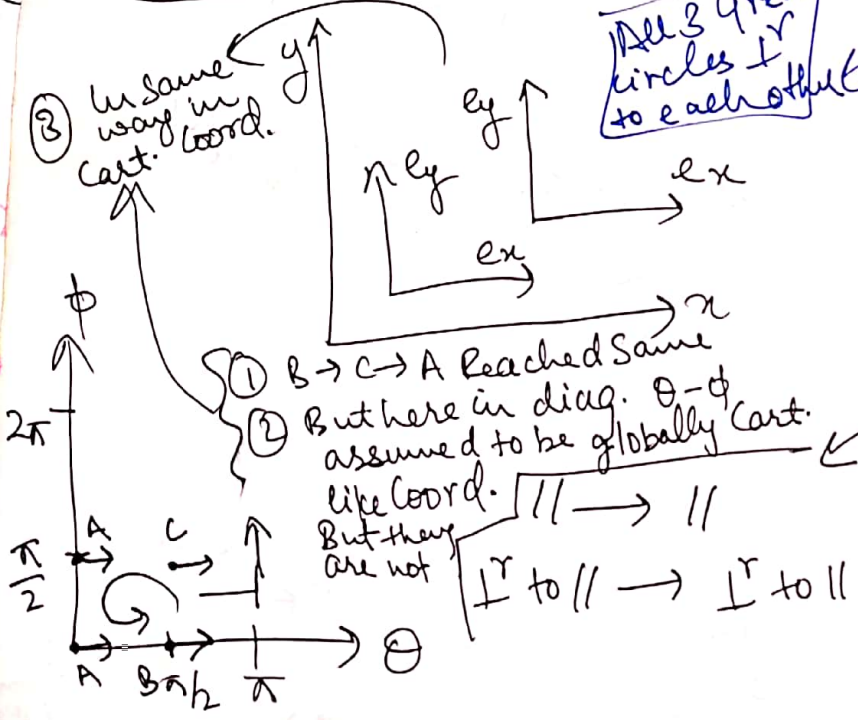 All 3 
circles ⊥ʳ
to each other
③ In same
way in
Cart. Coord.
y
ey
ex
ey
ex
x
ϕ
2π
π/2
① B → C → A Reached Same
② But here in diag. θ-ϕ
assumed to be globally Cart.
like Coord.
But they
are not
// → //
⊥ʳ to // → ⊥ʳ to //
A
C
A
B π/2
π
θ